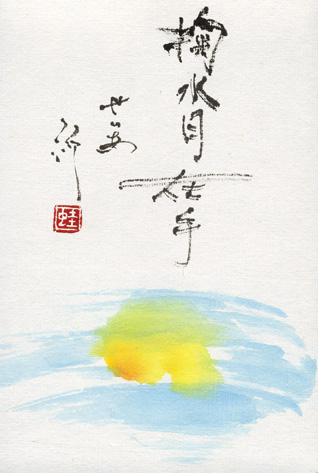 掬水月在手
せいあ
蛙